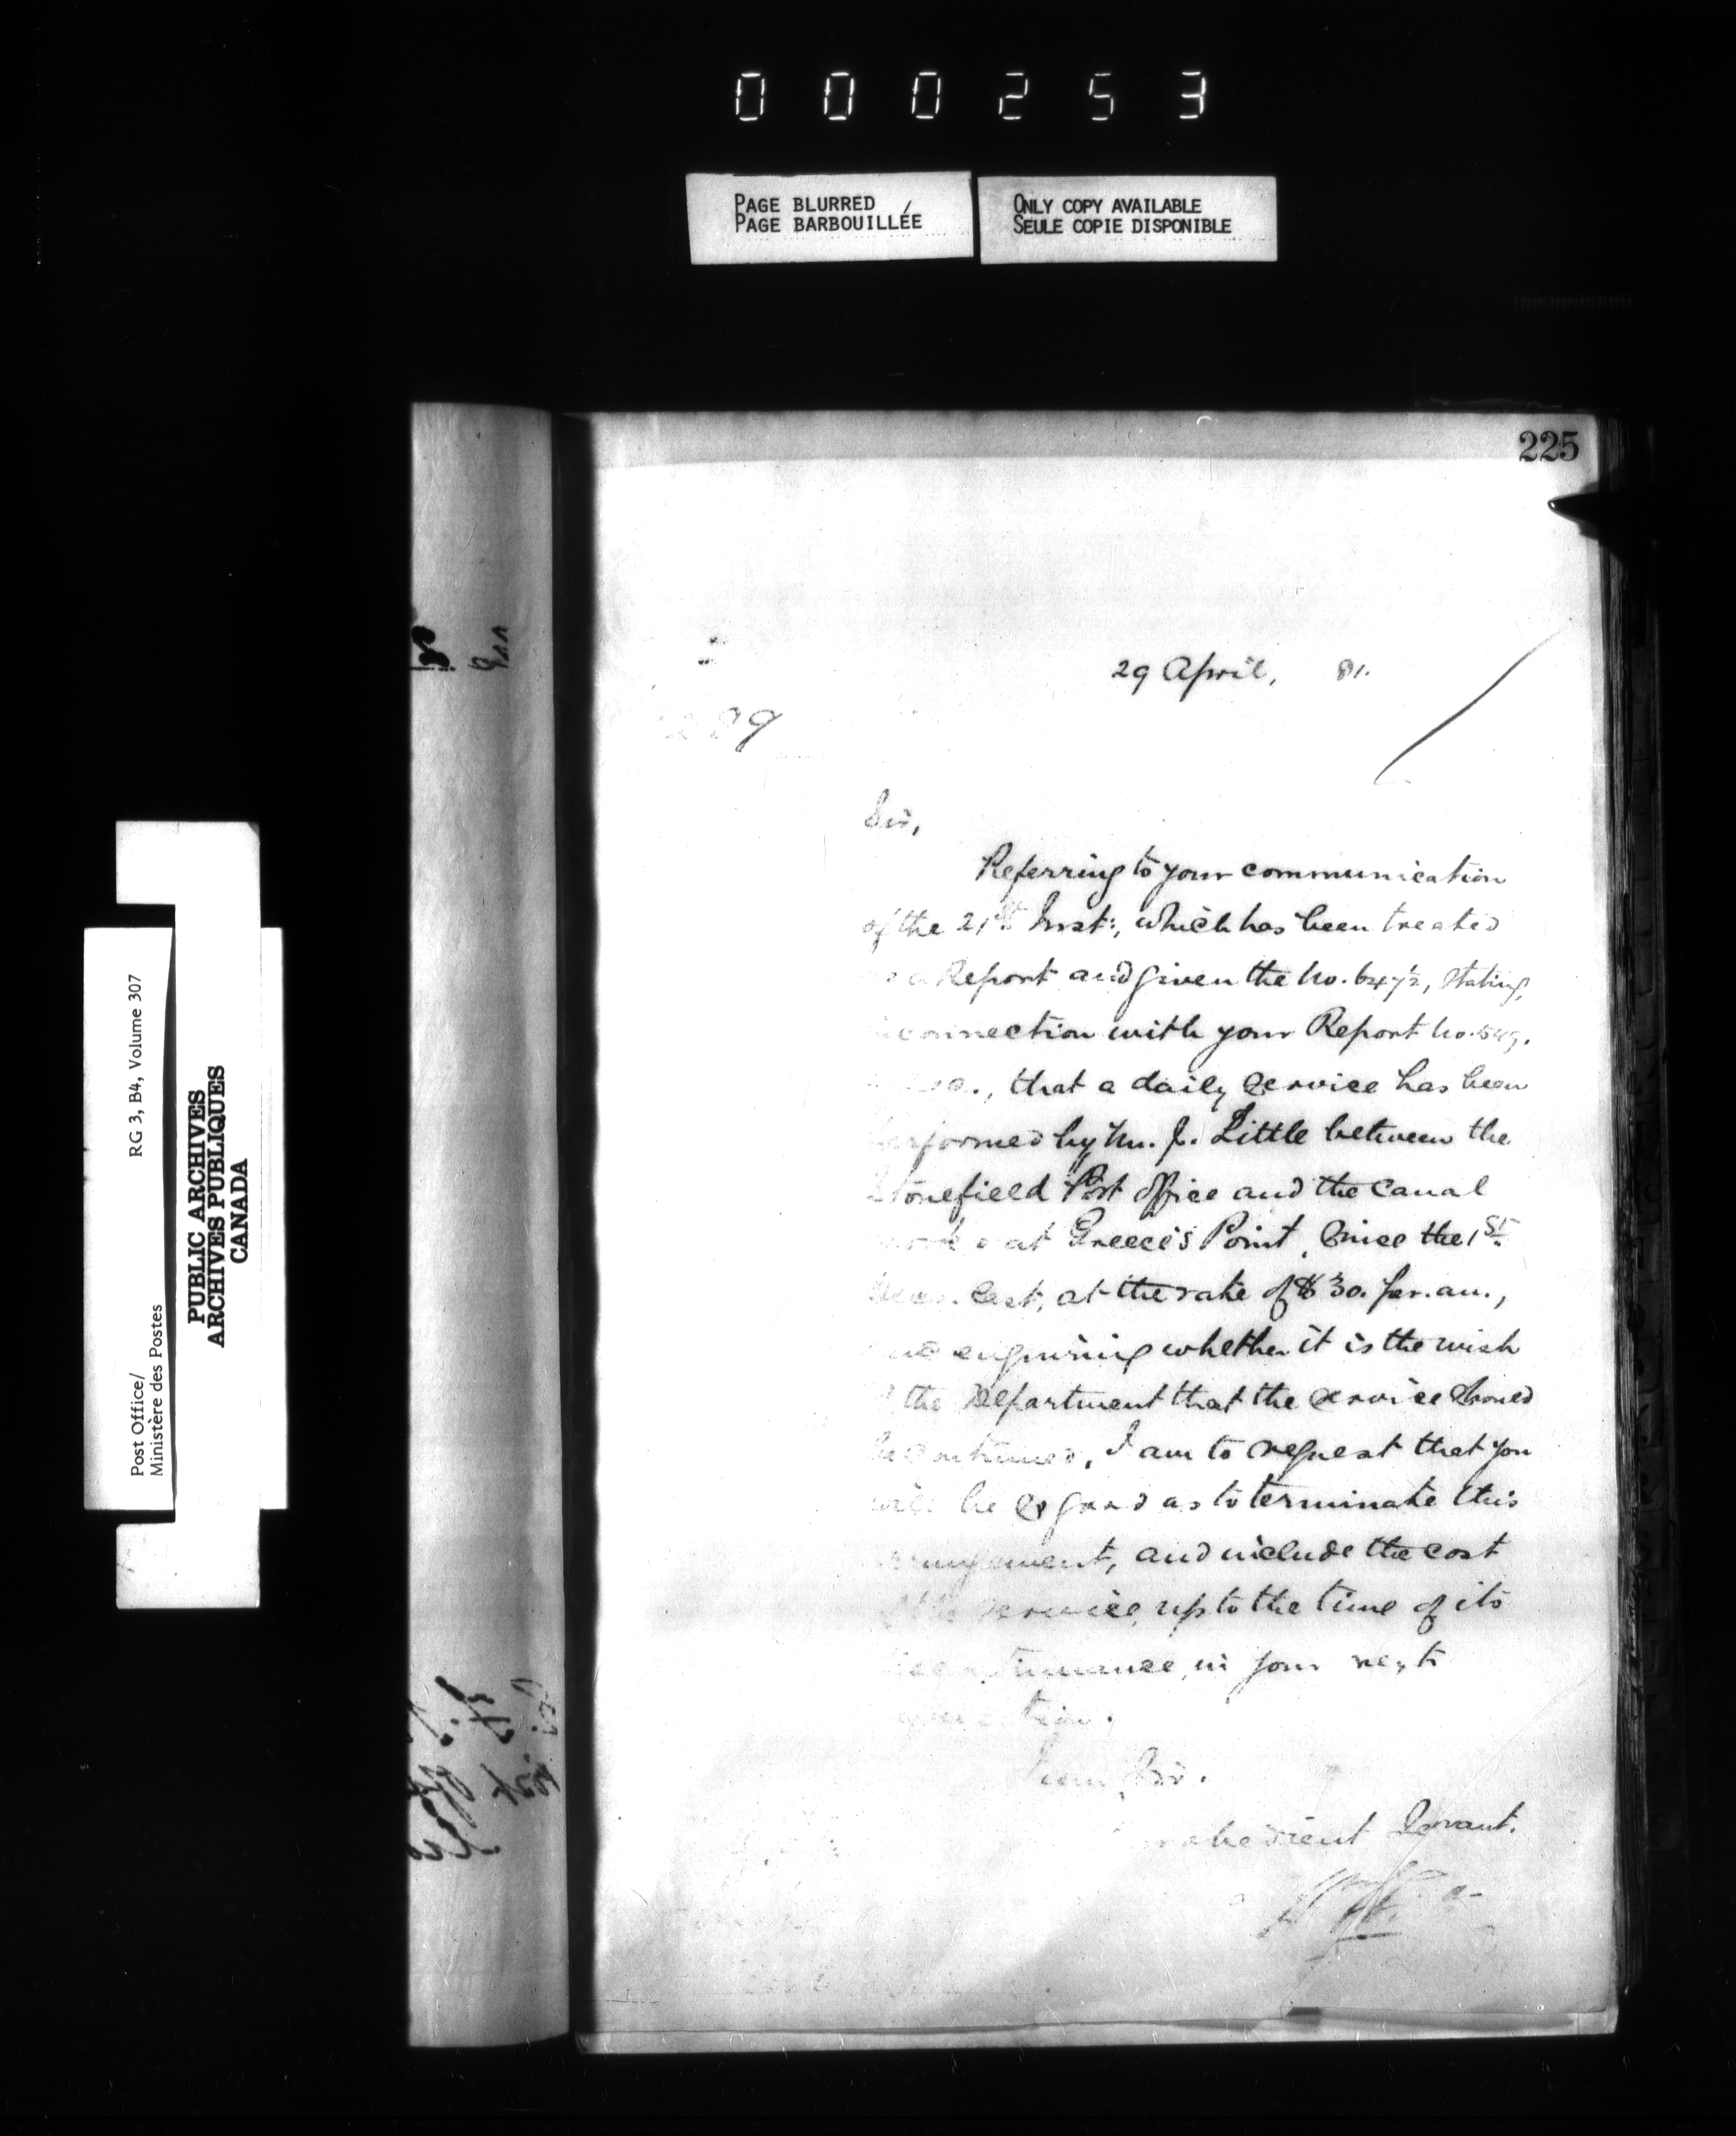 000253
PAGE BLURRED
PAGE BARBOUILLÉE
ONLY COPY AVAILABLE
SEULE COPIE DISPONIBLE
RG 3, B4, Volume 307
Post Office/
Ministère des Postes
PUBLIC ARCHIVES
ARCHIVES PUBLIQUES
CANADA
225
29 April, 81.
Sir,
Referring to your communication
of the 21st Inst:, which has been treated
a Report and given the No. 647½, stating,
connection with your Report No.
that a daily service has been
performed by Mr. J. Little between the
Stonefield Post Office and the Canal
at Greece's Point, since the 1st
at the rate of $30. per. an.,
enquiring whether it is the wish
the Department that the service should
be continued, I am to request that you
will be so good as to terminate this
arrangement, and include the cost
service, up to the time of its
in your next
Sir.
obedient Servant.